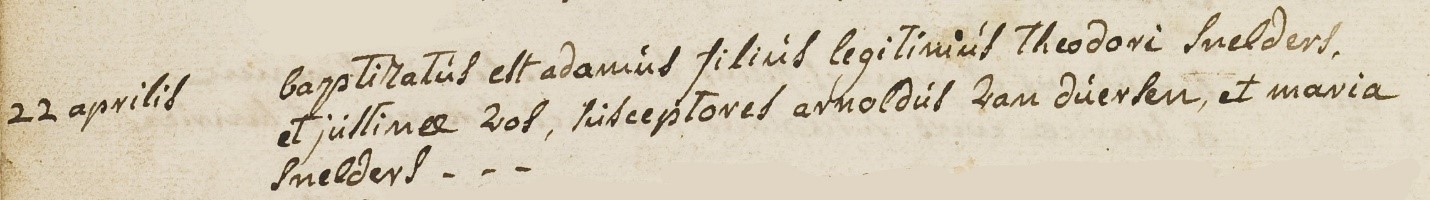 22 aprilis baptizatus est adamus filius legitimus Theodori Snelders,
et justinæ Vos, susceptores arnoldus Van duersen, et maria
Snelders - - -